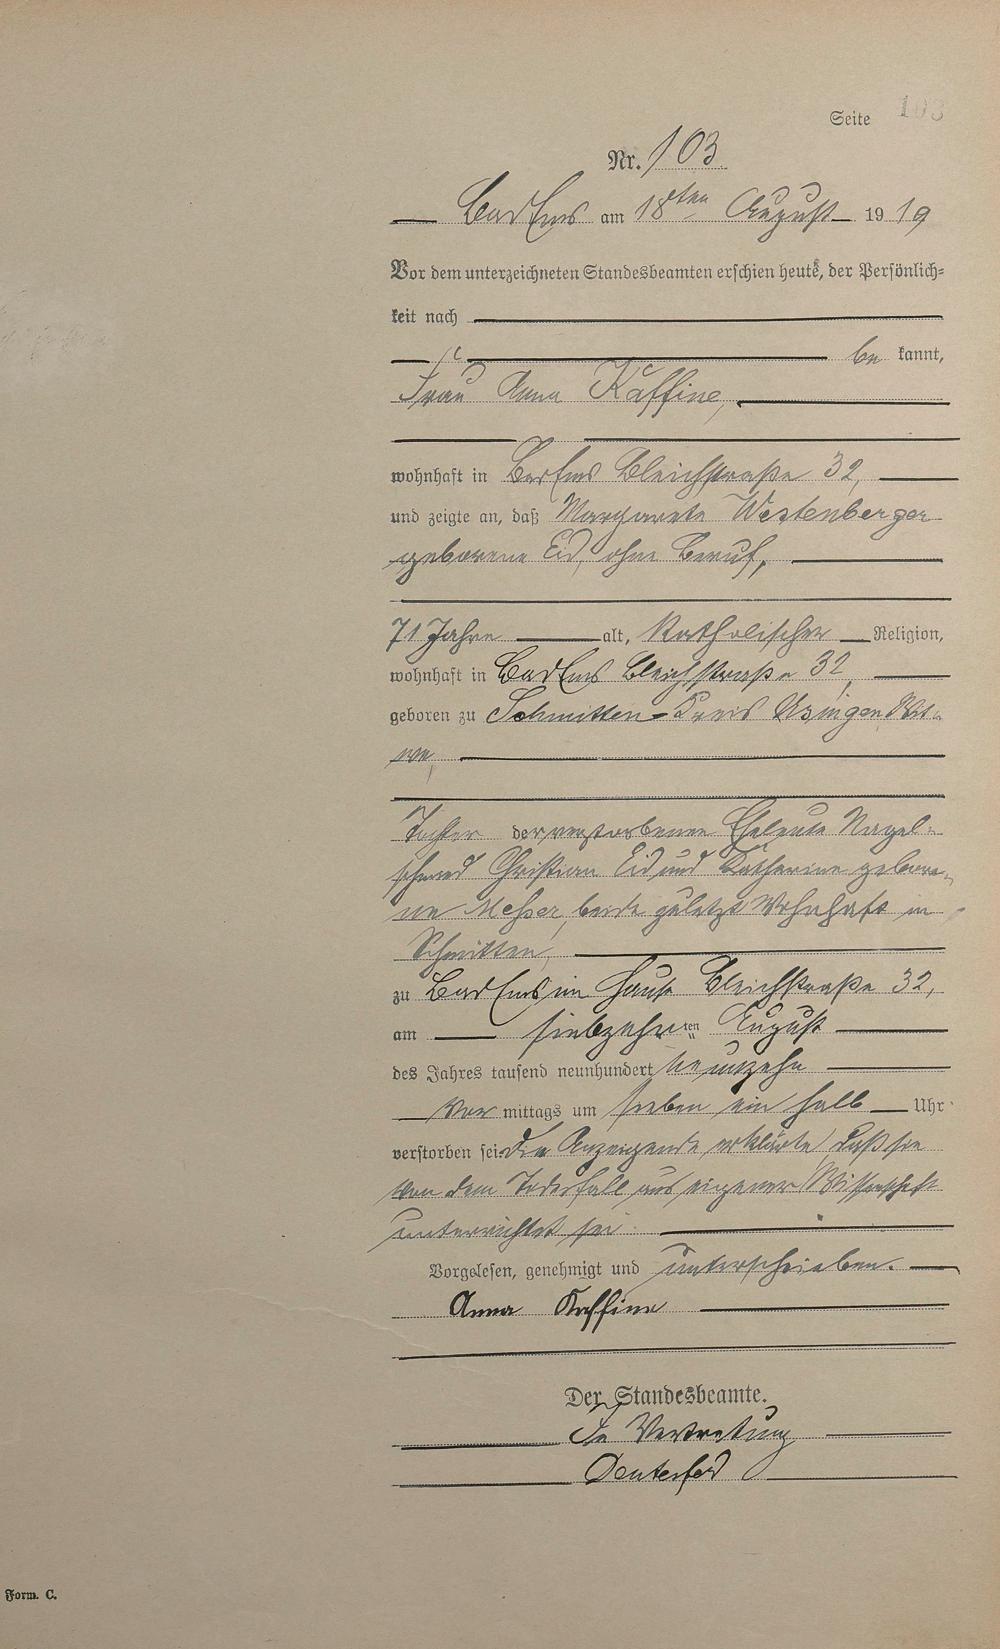 Seite 103
Nr. 103
Bad Ems am 18ten August 1919
Vor dem unterzeichneten Standesbeamten erschien heute, der Persönlich-
keit nach
be kannt,
Frau Anna Kaffine,
wohnhaft in Bad Ems Bleichstraße 32,
und zeigte an, daß Margarete Westenberger
geborene Eid, ohne Beruf,
71 Jahre alt, Katholischer Religion,
wohnhaft in Bad Ems Bleichstraße 32,
geboren zu Schmitten Kreis Usingen, Wit-
we,
Tochter der verstorbenen Eheleute Nagel-
schmied Christian Eid und Katharina gebore-
ne beide zuletzt wohnhaft in
Schmitten,
zu Bad Ems im Hause Bleichstraße 32,
am siebzehnten August
des Jahres tausend neunhundert neunzehn
Vor mittags um sieben ein halb Uhr
verstorben sei. Die Anzeigende erklärte, daß sie
von dem Todesfall aus eigener Wissenschaft
unterrichtet sei.
Vorgelesen, genehmigt und unterschrieben.
Anna Kaffine
Der Standesbeamte.
In Vertretung
Form. C.